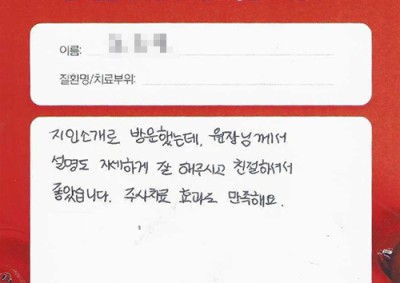 이름:
질환명/치료부위:
지인소개로 방문했는데, 원장님께서
설명도 자세하게 잘 해주시고 친절하셔서
좋았습니다. 주사치료 효과도 만족해요.